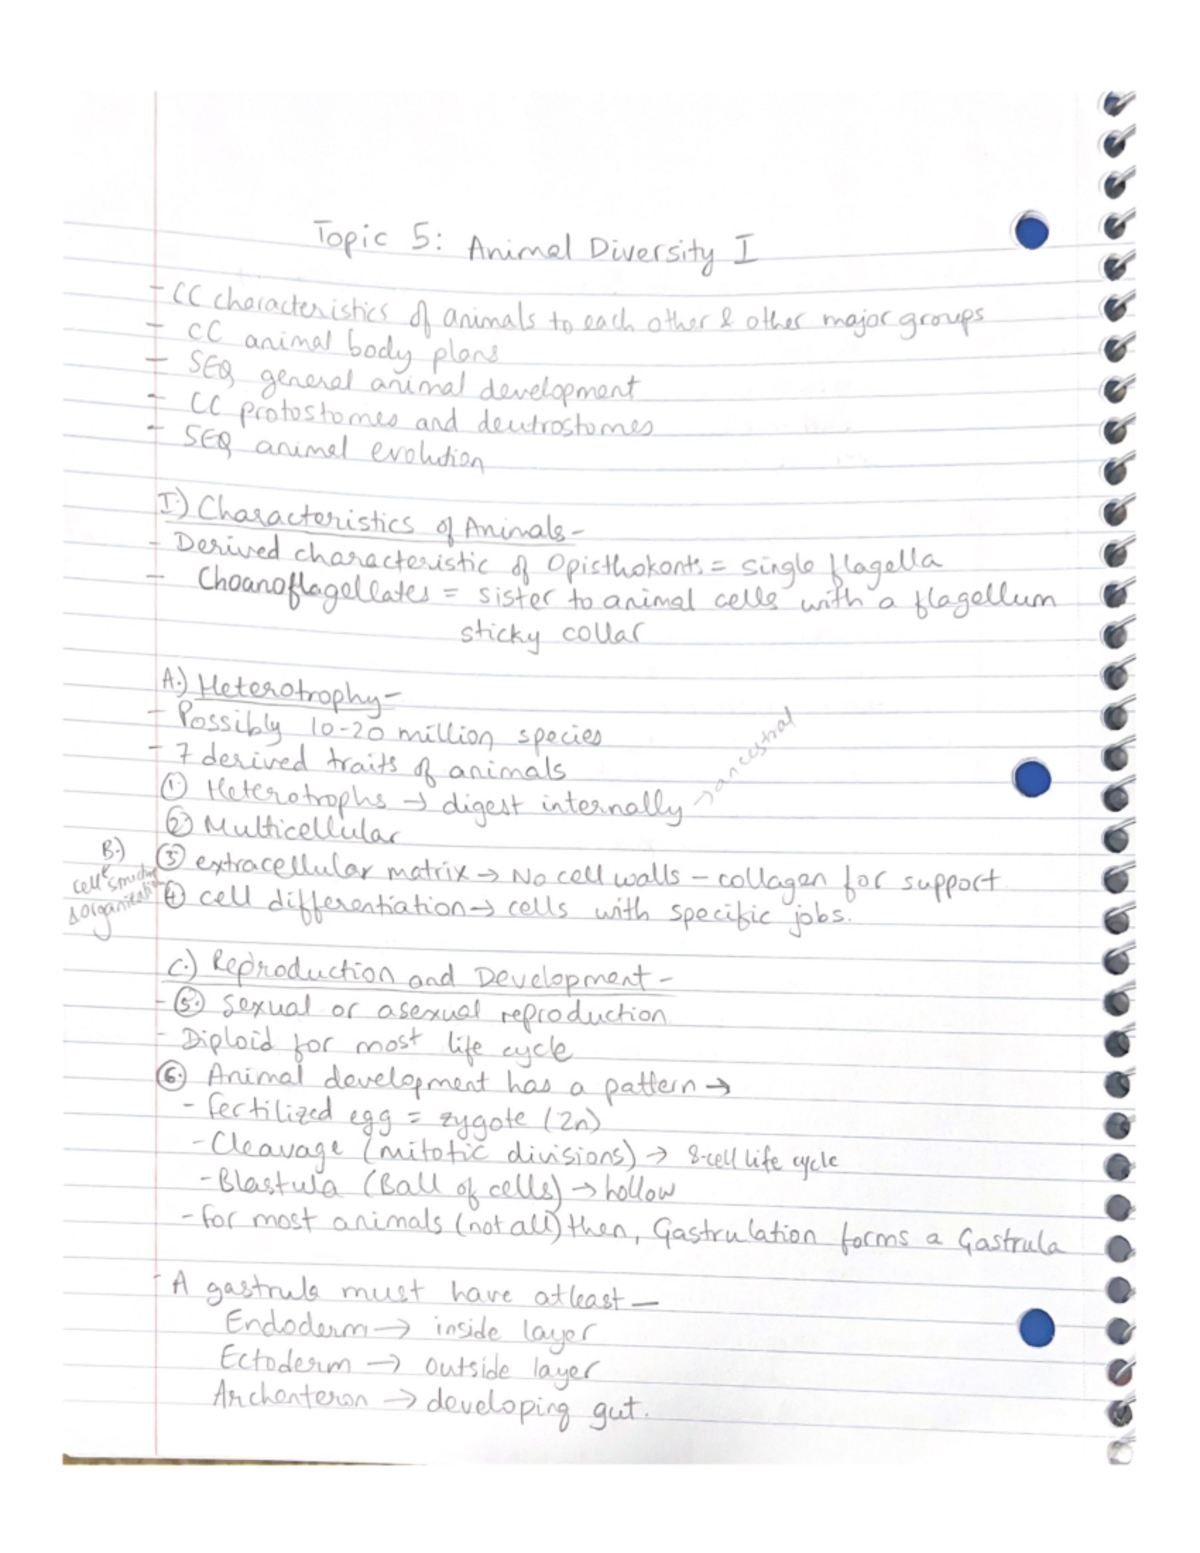 Topic 5: Animal Diversity I
- CC characteristics of animals to each other & other major groups
- CC animal body plans
- SEQ general animal development
- CC protostomes and deutrostomes
- SEQ animal evolution
I.) Characteristics of Animals-
- Derived characteristic of Opisthokonts = single flagella
- Choanoflagellates = sister to animal cells with a flagellum
sticky collar
A.) Heterotrophy-
- Possibly 10-20 million species
- 7 derived traits of animals
① Heterotrophs → digest internally → ancestral
② Multicellular
B.) cell structure & organization
③ extracellular matrix → No cell walls - collagen for support
④ cell differentiation → cells with specific jobs.
C.) Reproduction and Development-
- ⑤ Sexual or asexual reproduction
- Diploid for most life cycle
⑥ Animal development has a pattern →
- fertilized egg = zygote (2n)
- Cleavage (mitotic divisions) → 8-cell life cycle
- Blastula (Ball of cells) → hollow
- for most animals (not all) then, Gastrulation forms a Gastrula
- A gastrula must have atleast -
Endoderm → inside layer
Ectoderm → outside layer
Archenteron → developing gut.